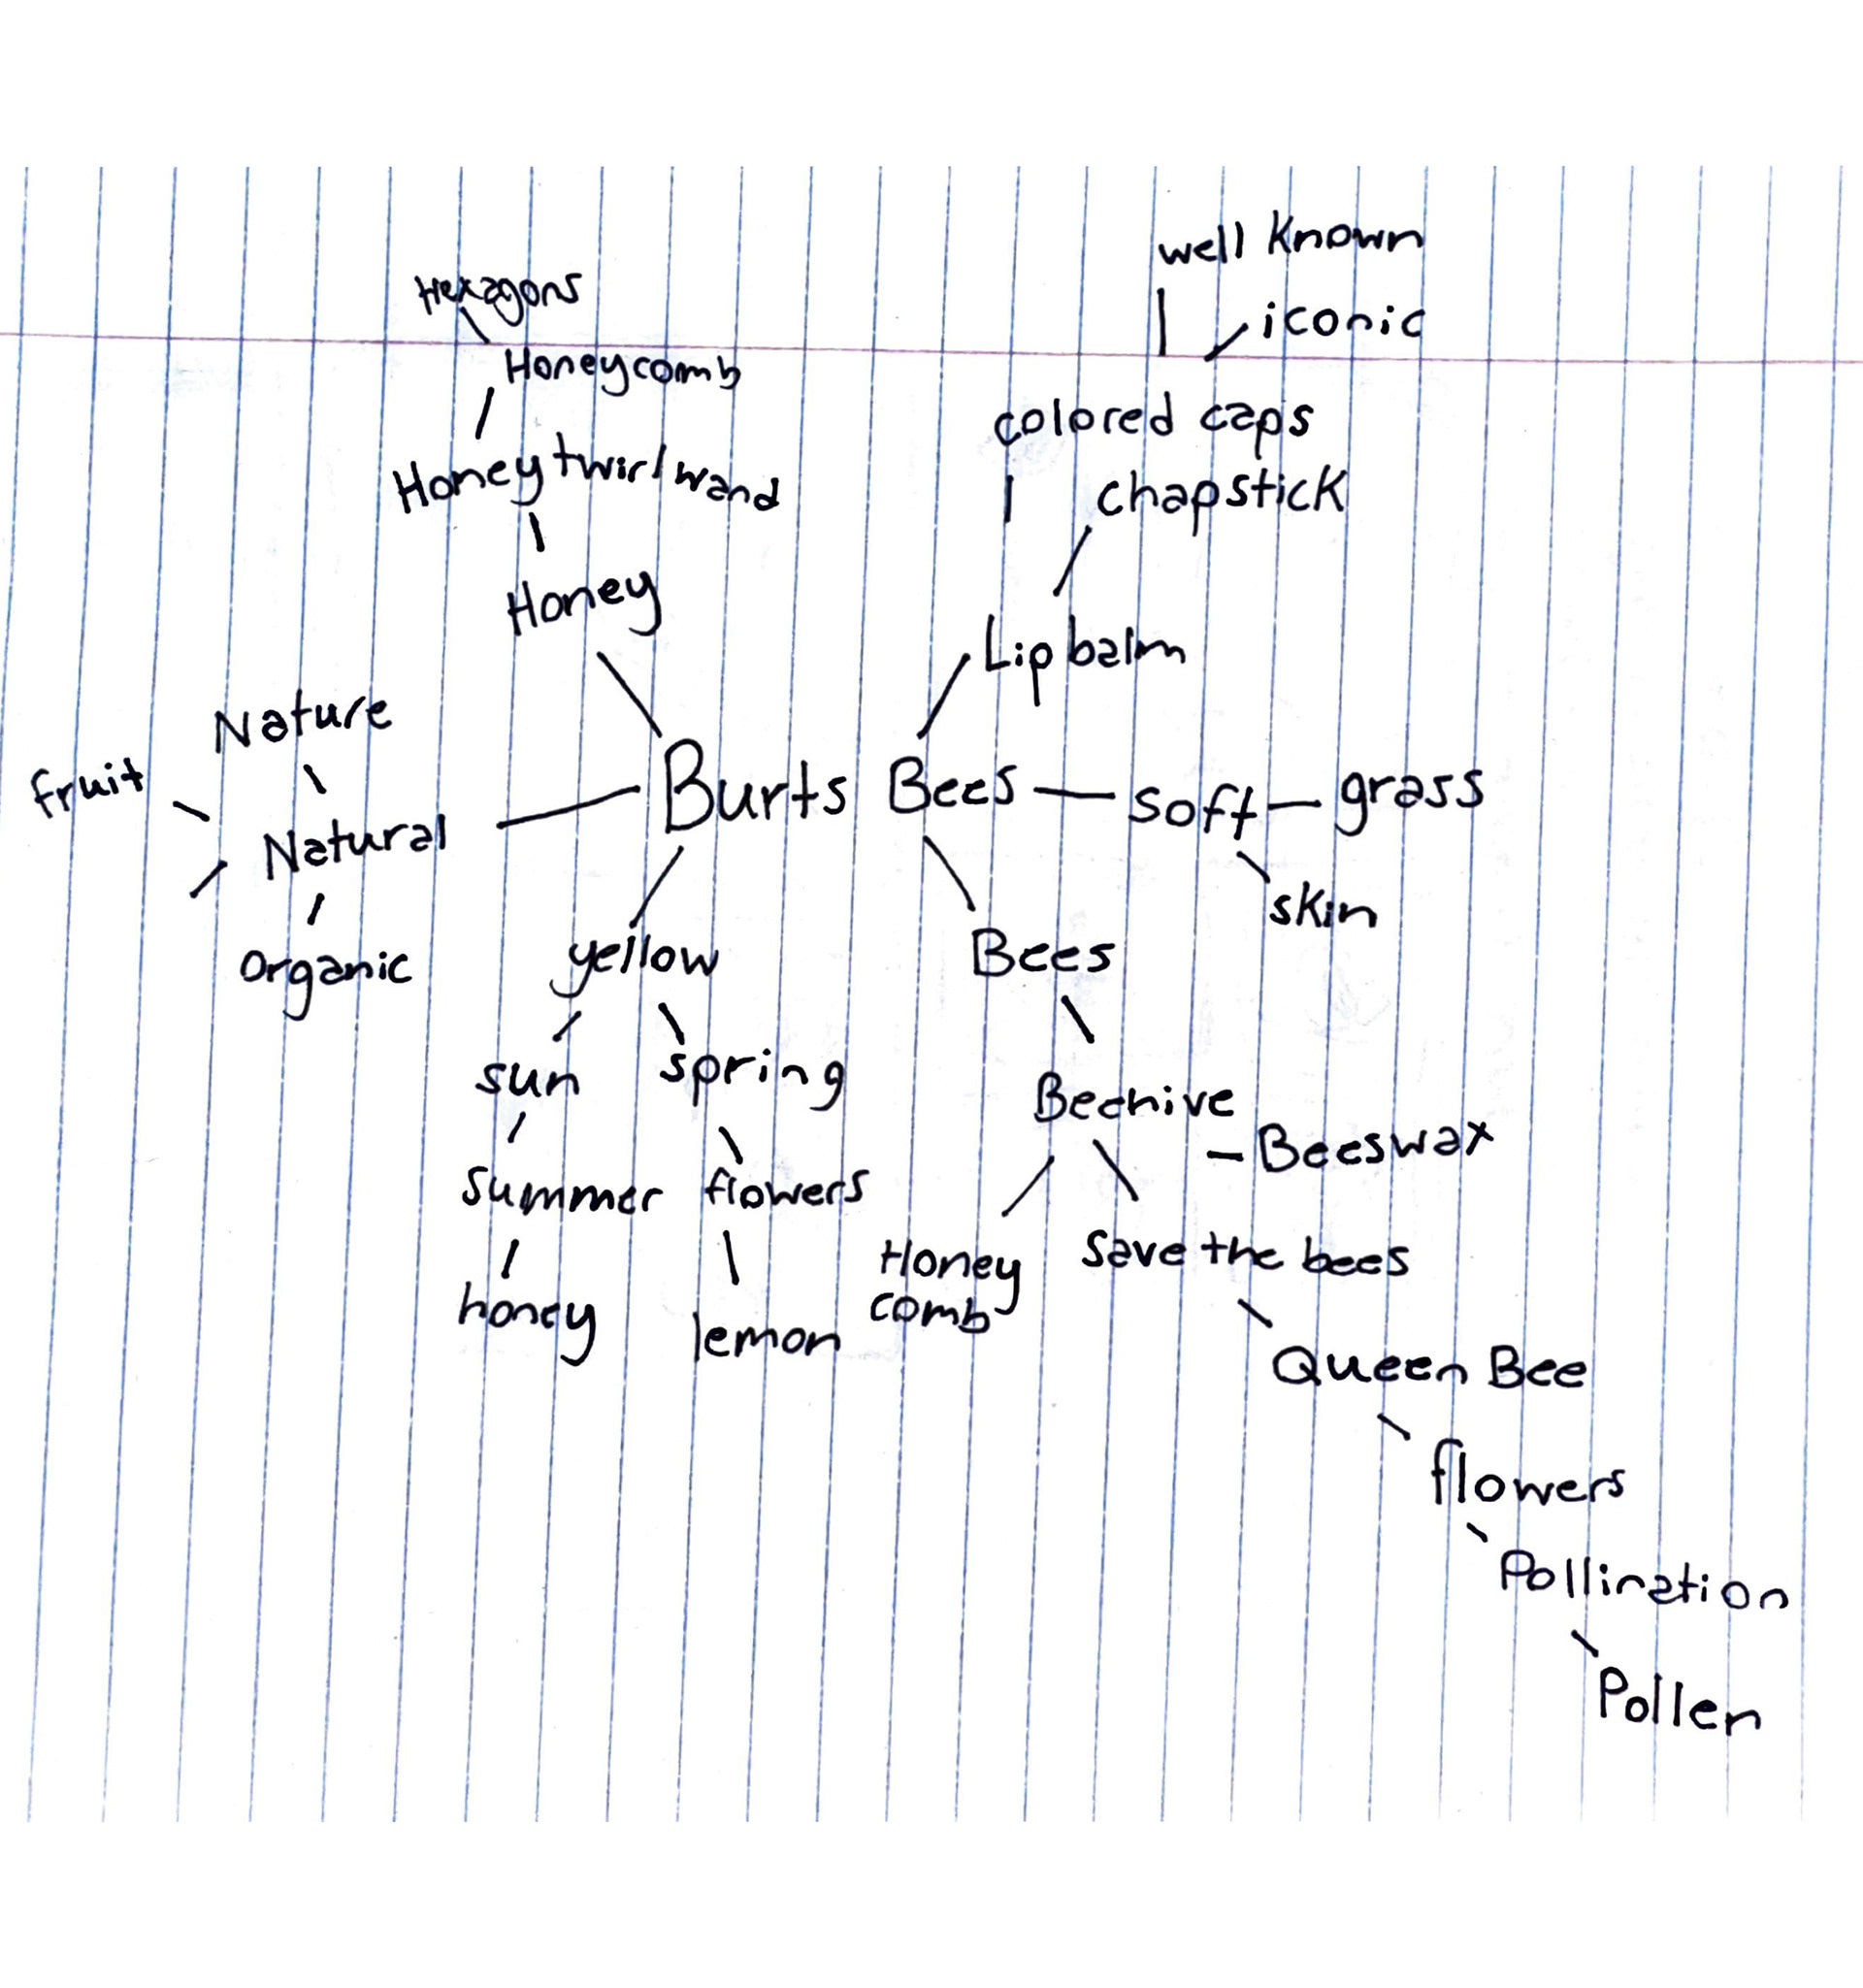 well Known
Hexagons
iconic
Honeycomb
colored caps
Honey twirl wand
chapstick
Honey
Lip balm
Nature
fruit
Burts Bees
soft
grass
Natural
skin
organic
yellow
Bees
sun
spring
Beehive
Beeswax
summer
flowers
Honey
comb
save the bees
honey
lemon
Queen Bee
flowers
Pollination
Pollen